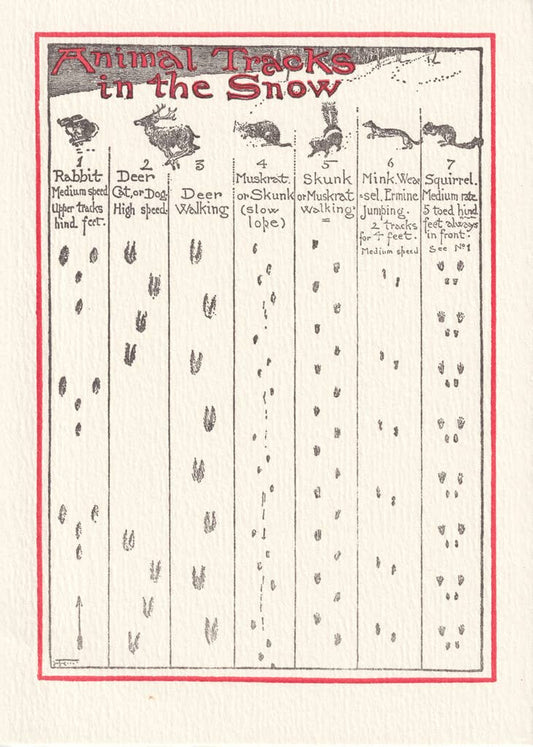 Animal Tracks
in the Snow
1
Rabbit
Medium speed
Upper tracks
hind feet.
2
Deer
Cat, or Dog
High speed
3
Deer
Walking
4
Muskrat.
or Skunk
(slow
lope)
5
Skunk
or Muskrat
walking
=
6
Mink, Wea
sel, Ermine
Jumping.
2 tracks
for 4 feet.
Medium speed
7
Squirrel.
Medium rate
5 toed hind
feet always
in front.
See No1